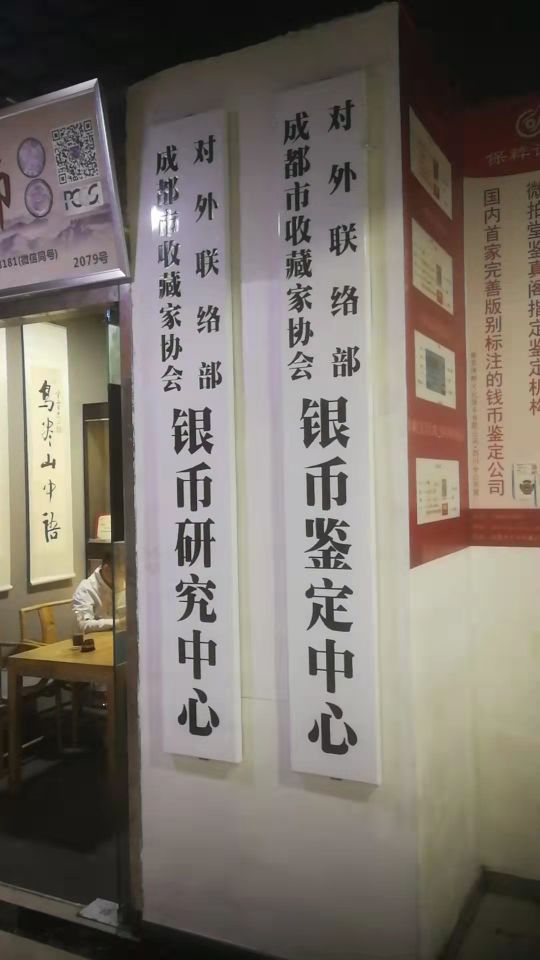 对外联络部
成都市收藏家协会
银币鉴定中心
对外联络部
成都市收藏家协会
银币研究中心
PCGS
8181(微信同号)
2079号
鸟尽山中语
保粹
微拍堂鉴真阁指定鉴定机构
国内首家完善版别标注的钱币鉴定公司